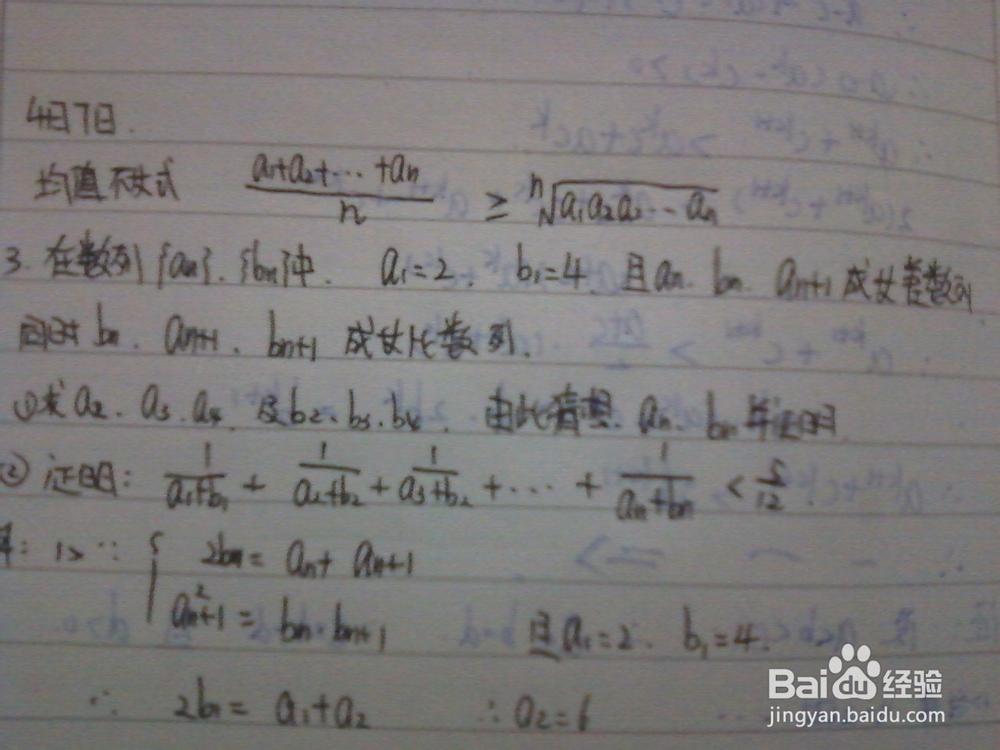 4月7日.
均值不等式 (a₁+a₂+…+aₙ)/n ≥ ⁿ√(a₁a₂a₃…aₙ)
3. 在数列{aₙ}.{bₙ}中. a₁=2. b₁=4. 且aₙ. bₙ. aₙ₊₁成等差数列
同时bₙ. aₙ₊₁. bₙ₊₁ 成等比数列.
①求a₂. a₃. a₄. 及b₂. b₃. b₄. 由此猜想. aₙ. bₙ并证明
② 证明: 1/(a₁+b₁) + 1/(a₂+b₂) + 1/(a₃+b₂) + … + 1/(aₙ+bₙ) < 5/12
解: 1> ∵ { 2bₙ = aₙ + aₙ₊₁
aₙ₊₁² = bₙ·bₙ₊₁ 且a₁=2. b₁=4.
∴ 2b₁= a₁+a₂ ∴ a₂=6
Baidu 经验
jingyan.baidu.com